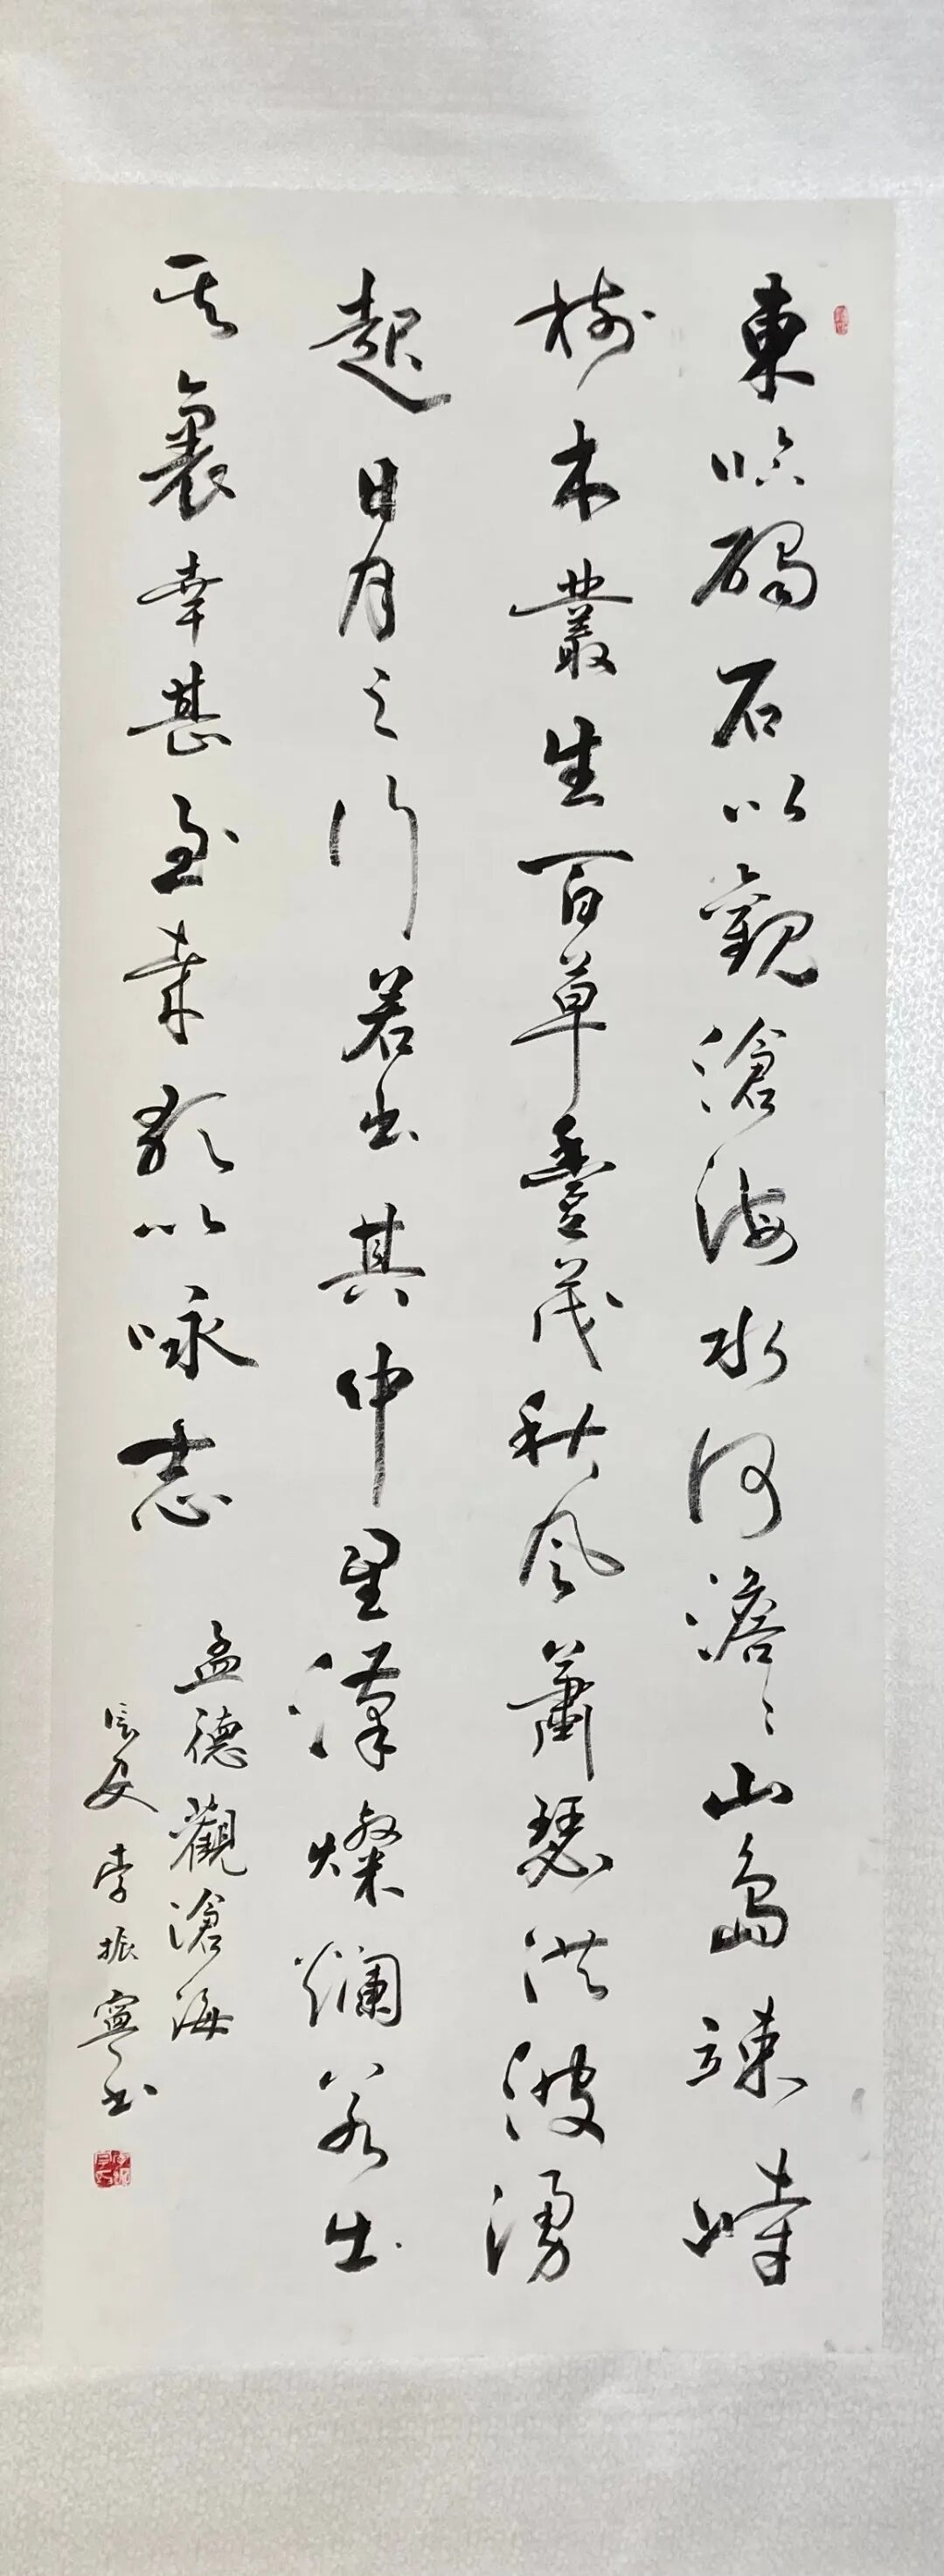 東臨碣石以觀滄海水何澹〻山島竦峙
樹木叢生百草豊茂秋風蕭瑟洪波湧
起日月之行若出其中星漢燦爛若出
其裏幸甚至幸歌以咏志
孟德觀滄海
李振寧书